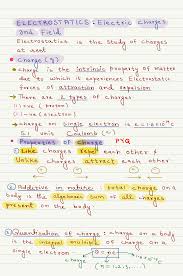 ELECTROSTATICS: Electric charges
and Field
Electrostatics is the study of charges
at rest
• Charge (q)
charge is the intrinsic property of matter
due to which is experiences Electrostatic
forces of attraction and repulsion
There are 2 types of charges
(i) +ve (proton)
(ii) -ve (electron)
charge on single electron is
S.I unit Coulomb (C)
• Properties of charge PYQ
Like charges repel each other &
Unlike charges attract each other
① Additive in nature: total charge on
a body is the algebraic sum of all charges
present on the body.
② Quantisation of charge: charge on a body
is the integral multiple of charge on a
single electron